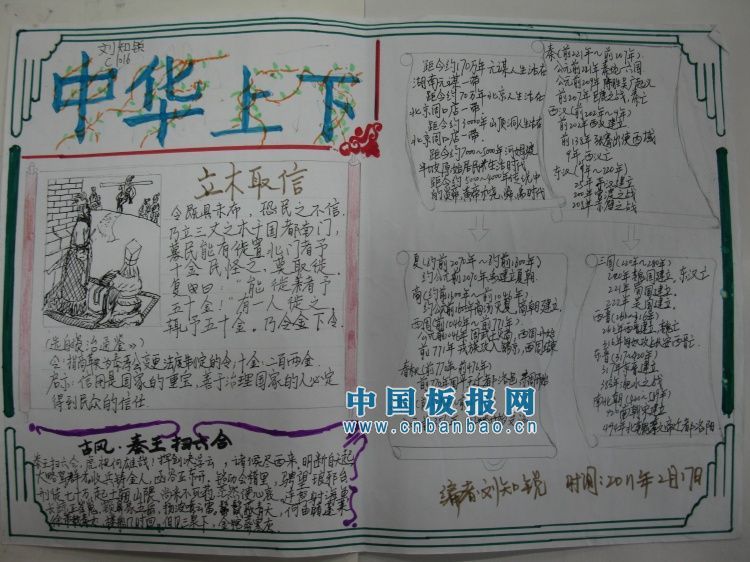 刘知锐
C1016
中华上下
立木取信
令既具未布，恐民之不信.
乃立三丈之木于国都南门，
募民能有徙置北门者予
十金.民怪之，莫敢徙.
复曰："能徙者予
五十金！"有一人徙之
再予五十金.乃令金下令.
五十金：二百两金.
启示：信用是国家的重宝，善于治理国家的人必定
得到民众的信任
古风·秦王扫六合
秦王扫六合，虎视何雄哉！挥剑决浮云，诸侯尽西来，明断自天启
大略驾群才，收兵铸金人，函谷正开，
刑徒七十万，起土骊山隈，尚采不死药，茫然使心哀，连弩射海鱼
距今约170万年元谋人生活在
湖南元谋一带
距今约70万年北京人生活在
北京周口店一带
距今约30000年山顶洞人生活在
北京周口店一带.
距今约7000~5000年河姆渡
半坡原始居民生活时代
距今约5000~4000年传说中
的炎帝、黄帝、尧、舜、禹时代
秦(前221年~前207年)
公元前221年秦统一六国
公元前209年陈胜吴广起义
前207年巨鹿之战，秦亡
西汉(前202年~9年)
前202年西汉建立
前138年张骞出使西域
9年，西汉亡
东汉(9年~220年)
25年东汉建立
200年官渡之战
208年赤壁之战
夏(约前2070年~约前1600年)
约公元前2070年禹建立夏朝
商(约前1600年~前1046年)
约公元前1600年商汤灭夏，商朝建立
西周(前1046年~前771年)
公元前1046年周武王灭商，西周开始
前771年犬戎攻入镐京，西周结束
春秋(前770年~前476年)
三国(220年~280年)
220年魏国建立，东汉亡
221年蜀国建立.
222年吴国建立.
西晋(265~316年)
265年西晋建立，魏亡
316年匈奴攻占长安，西晋亡
东晋(317~420年)
317年东晋建立
383年淝水之战
南北朝(420~589年)
420年南朝宋建立
494年北魏孝文帝迁都洛阳
中国板报网
www.cnbanbao.cn
编者：刘知锐 时间：2011年2月17日